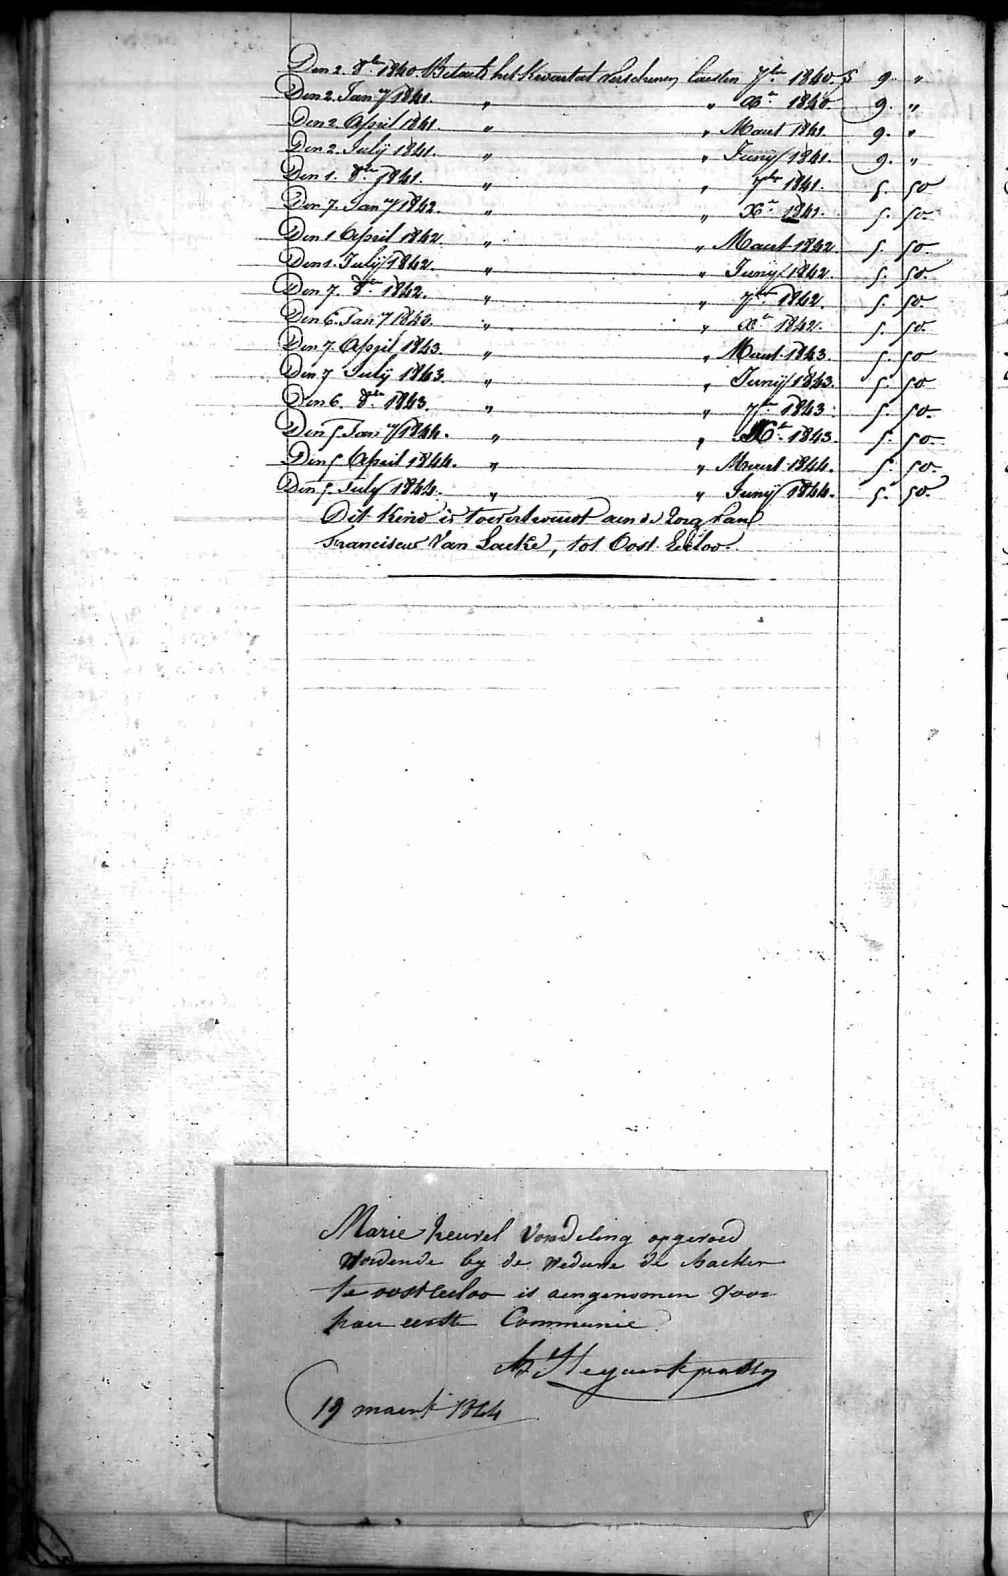 Den 2. 8.br 1840. Betaelt het Kwartael verschenen laesten 7.br 1840. f 9. "
Den 2. Jan.y 1841. " " Xr. 1840. 9. "
Den 2. April 1841. " " Maart 1841. 9. "
Den 2. July 1841. " " Juny 1841. 9. "
Den 1. 8.br 1841. " " 7br 1841. 5. 50
Den 7. Jan.y 1842. " " Xr. 1841. 5. 50.
Den 1 April 1842. " " Maart 1842 5. 50.
Den 1. July 1842. " " Juny 1842. 5. 50.
Den 7. 8.br 1842. " " 7br 1842. 5. 50.
Den 6. Jan.y 1843. " " Xr. 1842. 5. 50.
Den 7. April 1843. " " Maart 1843. 5. 50
Den 7 July 1843. " " Juny 1843. 5. 50
Den 6. 8.br 1843. " " 7br 1843. 5. 50.
Den 5. Jan.y 1844. " " Xr. 1843. 5. 50.
Den 5 April 1844. " " Maart 1844. 5. 50.
Den 5. July 1844. " " Juny 1844. 5. 50.
Dit kind is toevertrouwt aen de zorg van
Franciscus Van Laeke, tot Oost Eecloo.
Marie heuvel vondeling opgevoed
wordende by de weduwe de backer
te oosteecloo is aengenomen voor
haer eerste Communie
19 maert 1844